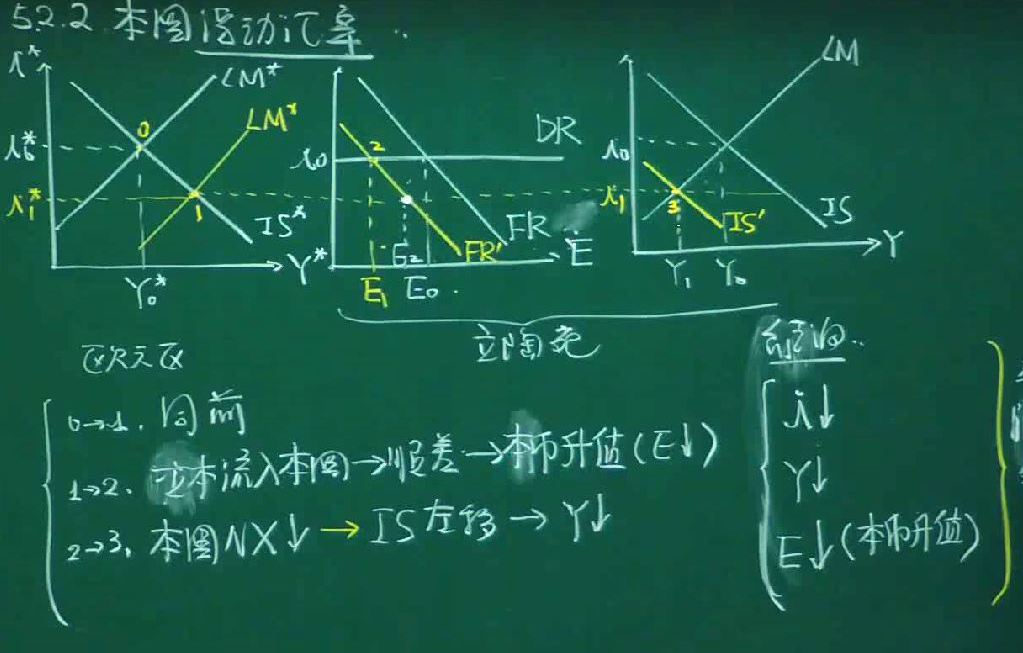 5.2.2 本国浮动汇率
i* LM* LM* i₀* i₁* 0 1 IS* Y* Y₀*
i₀ DR 2 FR FR' E E₁ E₂ E₀
LM i₀ i₁ 3 IS' IS Y Y₁ Y₀
欧元区
立陶宛
结论
0→1. 同前
1→2. 资本流入本国→顺差→本币升值(E↓)
2→3. 本国NX↓→IS左移→Y↓
i↓
Y↓
E↓(本币升值)